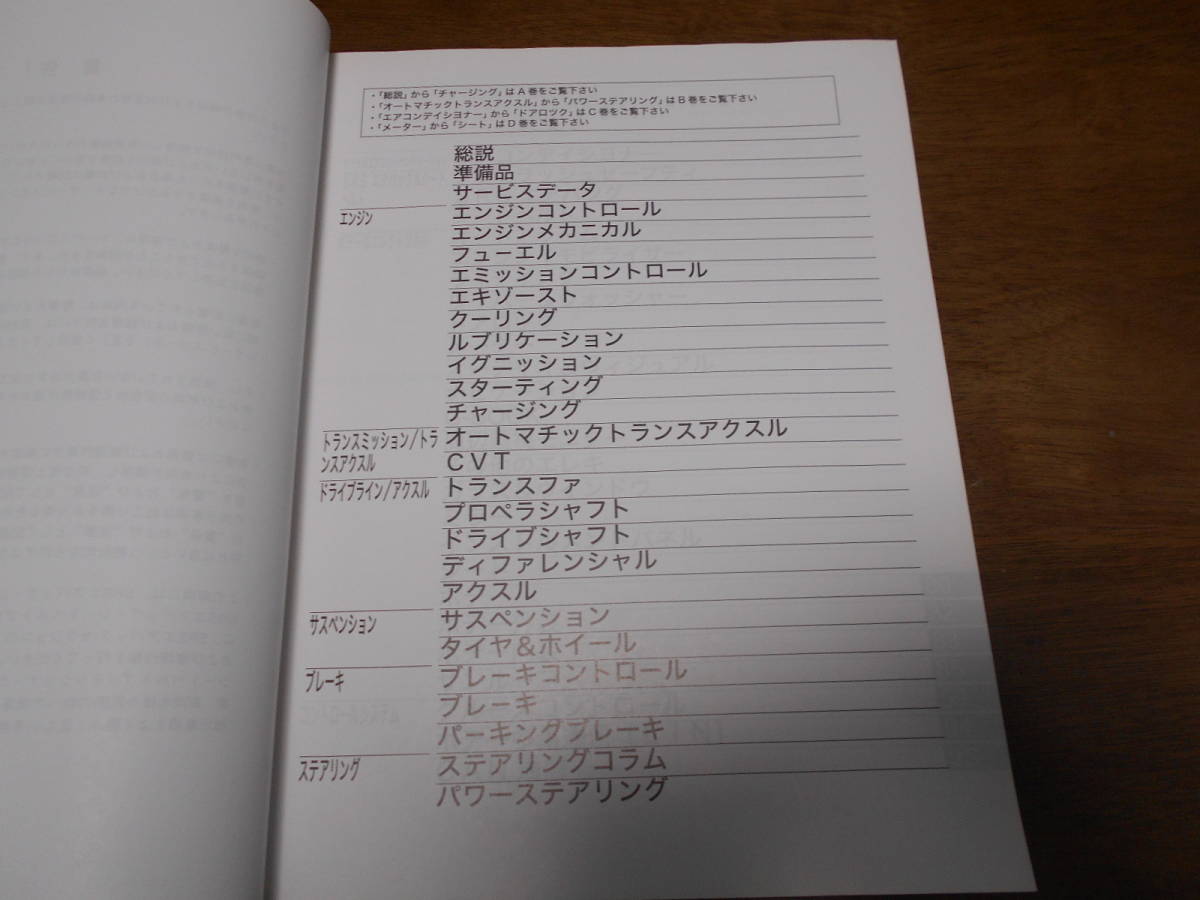 ・「総説」から「チャージング」はA巻をご覧下さい
・「オートマチックトランスアクスル」から「パワーステアリング」はB巻をご覧下さい
・「エアコンデイショナー」から「ドアロツク」はC巻をご覧下さい
・「メーター」から「シート」はD巻をご覧下さい
総説
準備品
サービスデータ
エンジン
エンジンコントロール
エンジンメカニカル
フューエル
エミッションコントロール
エキゾースト
クーリング
ルブリケーション
イグニッション
スターティング
チャージング
トランスミッション/トラ
ンスアクスル
オートマチックトランスアクスル
CVT
ドライブライン/アクスル
トランスファ
プロペラシャフト
ドライブシャフト
ディファレンシャル
アクスル
サスペンション
サスペンション
タイヤ&ホイール
ブレーキ
ブレーキコントロール
ブレーキ
パーキングブレーキ
ステアリング
ステアリングコラム
パワーステアリング